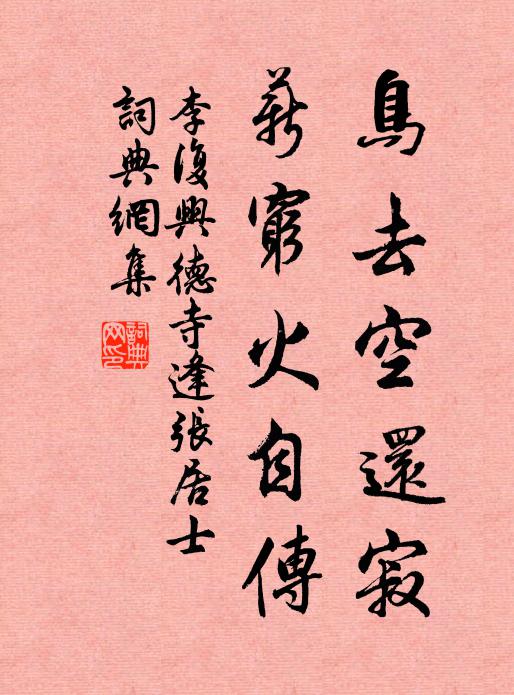 鳥去空還寂
薪窮火自傳
李復興德寺逢張居士
詞典網集
詞典網印